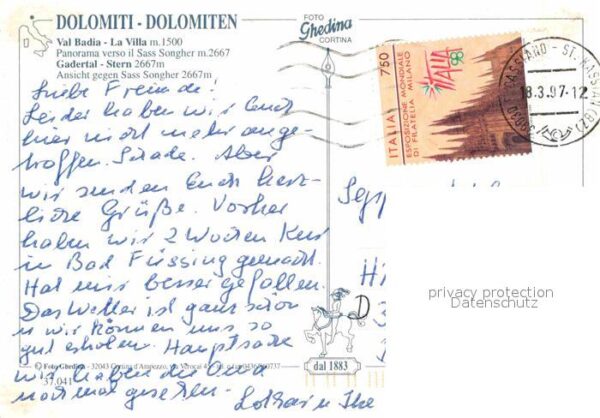 DOLOMITI - DOLOMITEN
Val Badia - La Villa m.1500
Panorama verso il Sass Songher m.2667
Gadertal - Stern 2667m
Ansicht gegen Sass Songher 2667m
FOTO
Ghedina
CORTINA
750
ITALIA
ESPOSIZIONE MONDIALE
DI FILATELIA MILANO
ITALIA 98
ST. KASSIAN (BZ)
18.3.97-12
Liebe Freunde!
Leider haben wir Euch
hier nicht mehr ange-
troffen. Schade. Aber
wir senden Euch herz-
liche Grüße. Vorher
haben wir 2 Wochen Kur
in Bad Füssing gemacht.
Hat uns besser gefallen.
Das Wetter ist ganz schön
u wir können uns so
gut erholen. Hauptsache
wir haben
noch mal gesehen.
Lothar u
D
privacy protection
Datenschutz
© Foto Ghedina - 32043 Cortina d'Ampezzo,
dal 1883
37.041